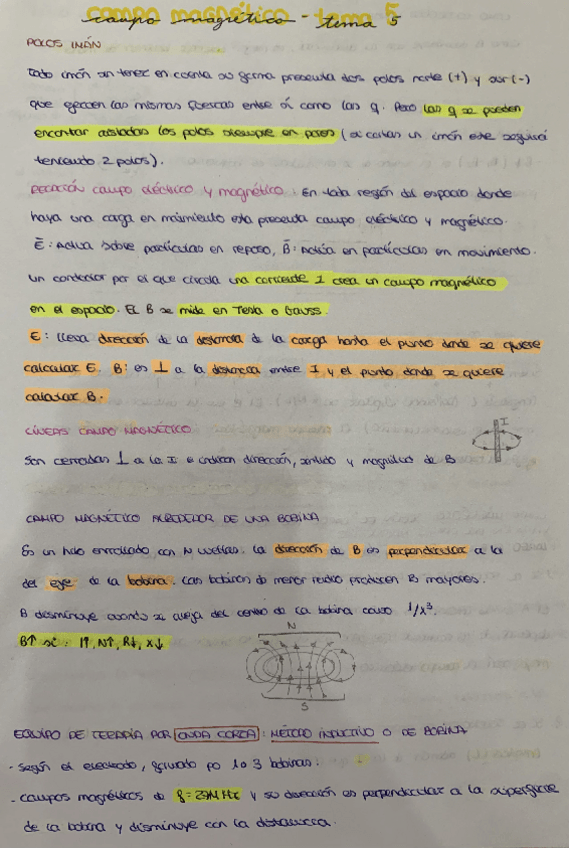 campo magnético - tema 5
POLOS IMÁN
todo imán sin tener en cuenta su forma presenta dos polos norte (+) y sur (-)
que ejercen las mismas fuerzas entre sí como las q. Pero las q se pueden
encontrar aisladas los polos siempre en pares (si cortas un imán este seguirá
teniendo 2 polos).
RELACIÓN campo eléctrico y magnético: En toda región del espacio donde
haya una carga en movimiento esta presenta campo eléctrico y magnético.
E: Actua sobre partículas en reposo, B: Actúa en partículas en movimiento.
un conductor por el que circula una corriente I crea un campo magnético
en el espacio. El B se mide en Tesla o Gauss.
E: lleva dirección de la distancia de la carga hasta el punto donde se quiere
calcular E. B: es ⊥ a la distancia entre I y el punto donde se quiere
calcular B.
LÍNEAS CAMPO MAGNÉTICO
I
Son cerradas ⊥ a la I e indican dirección, sentido y magnitud de B
CAMPO MAGNÉTICO ALREDEDOR DE UNA BOBINA
Es un hilo enrollado con N vueltas. la dirección de B es perpendicular a la
del eje de la bobina. Las bobinas de menor radio producen B mayores.
B disminuye cuando se aleja del centro de la bobina como 1/x³.
B↑ si: I↑, N↑, R↓, x↓
N
S
EQUIPO DE TERAPIA POR ONDA CORTA: MÉTODO INDUCTIVO O DE BOBINA
- según el electrodo, formado po 1 o 3 bobinas.
- campos magnéticos de f = 27MHz y su dirección es perpendicular a la superficie
de la bobina y disminuye con la distancia.